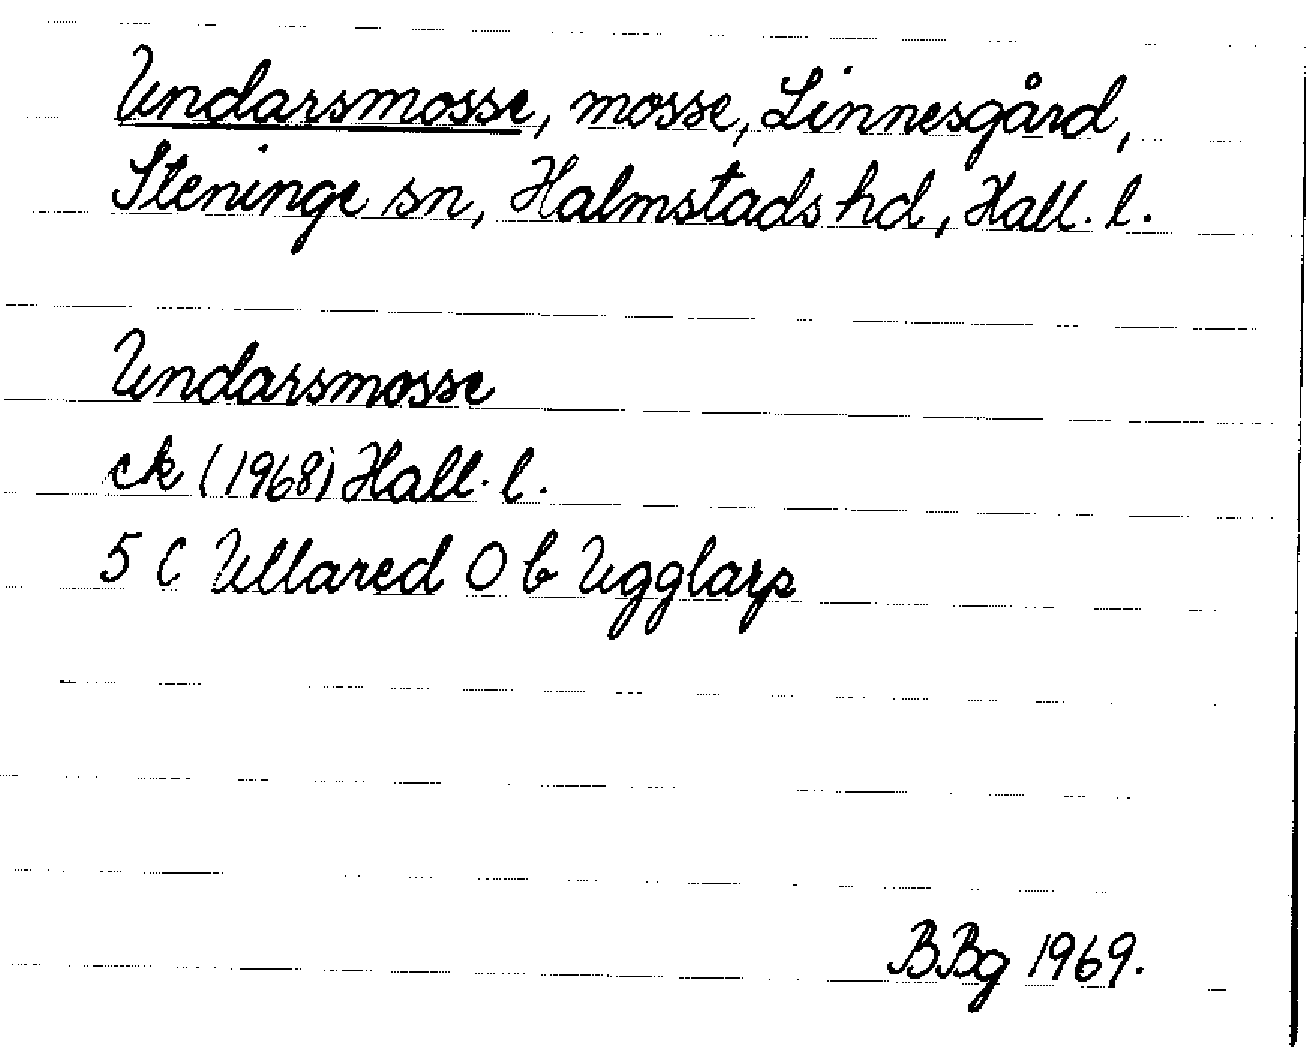 Undarsmosse, mosse, Linnesgård,
Steninge sn, Halmstads hd, Hall. l.
Undarsmosse
ek (1968) Hall. l.
5 C Ullared O b Ugglarp
BBg 1969.